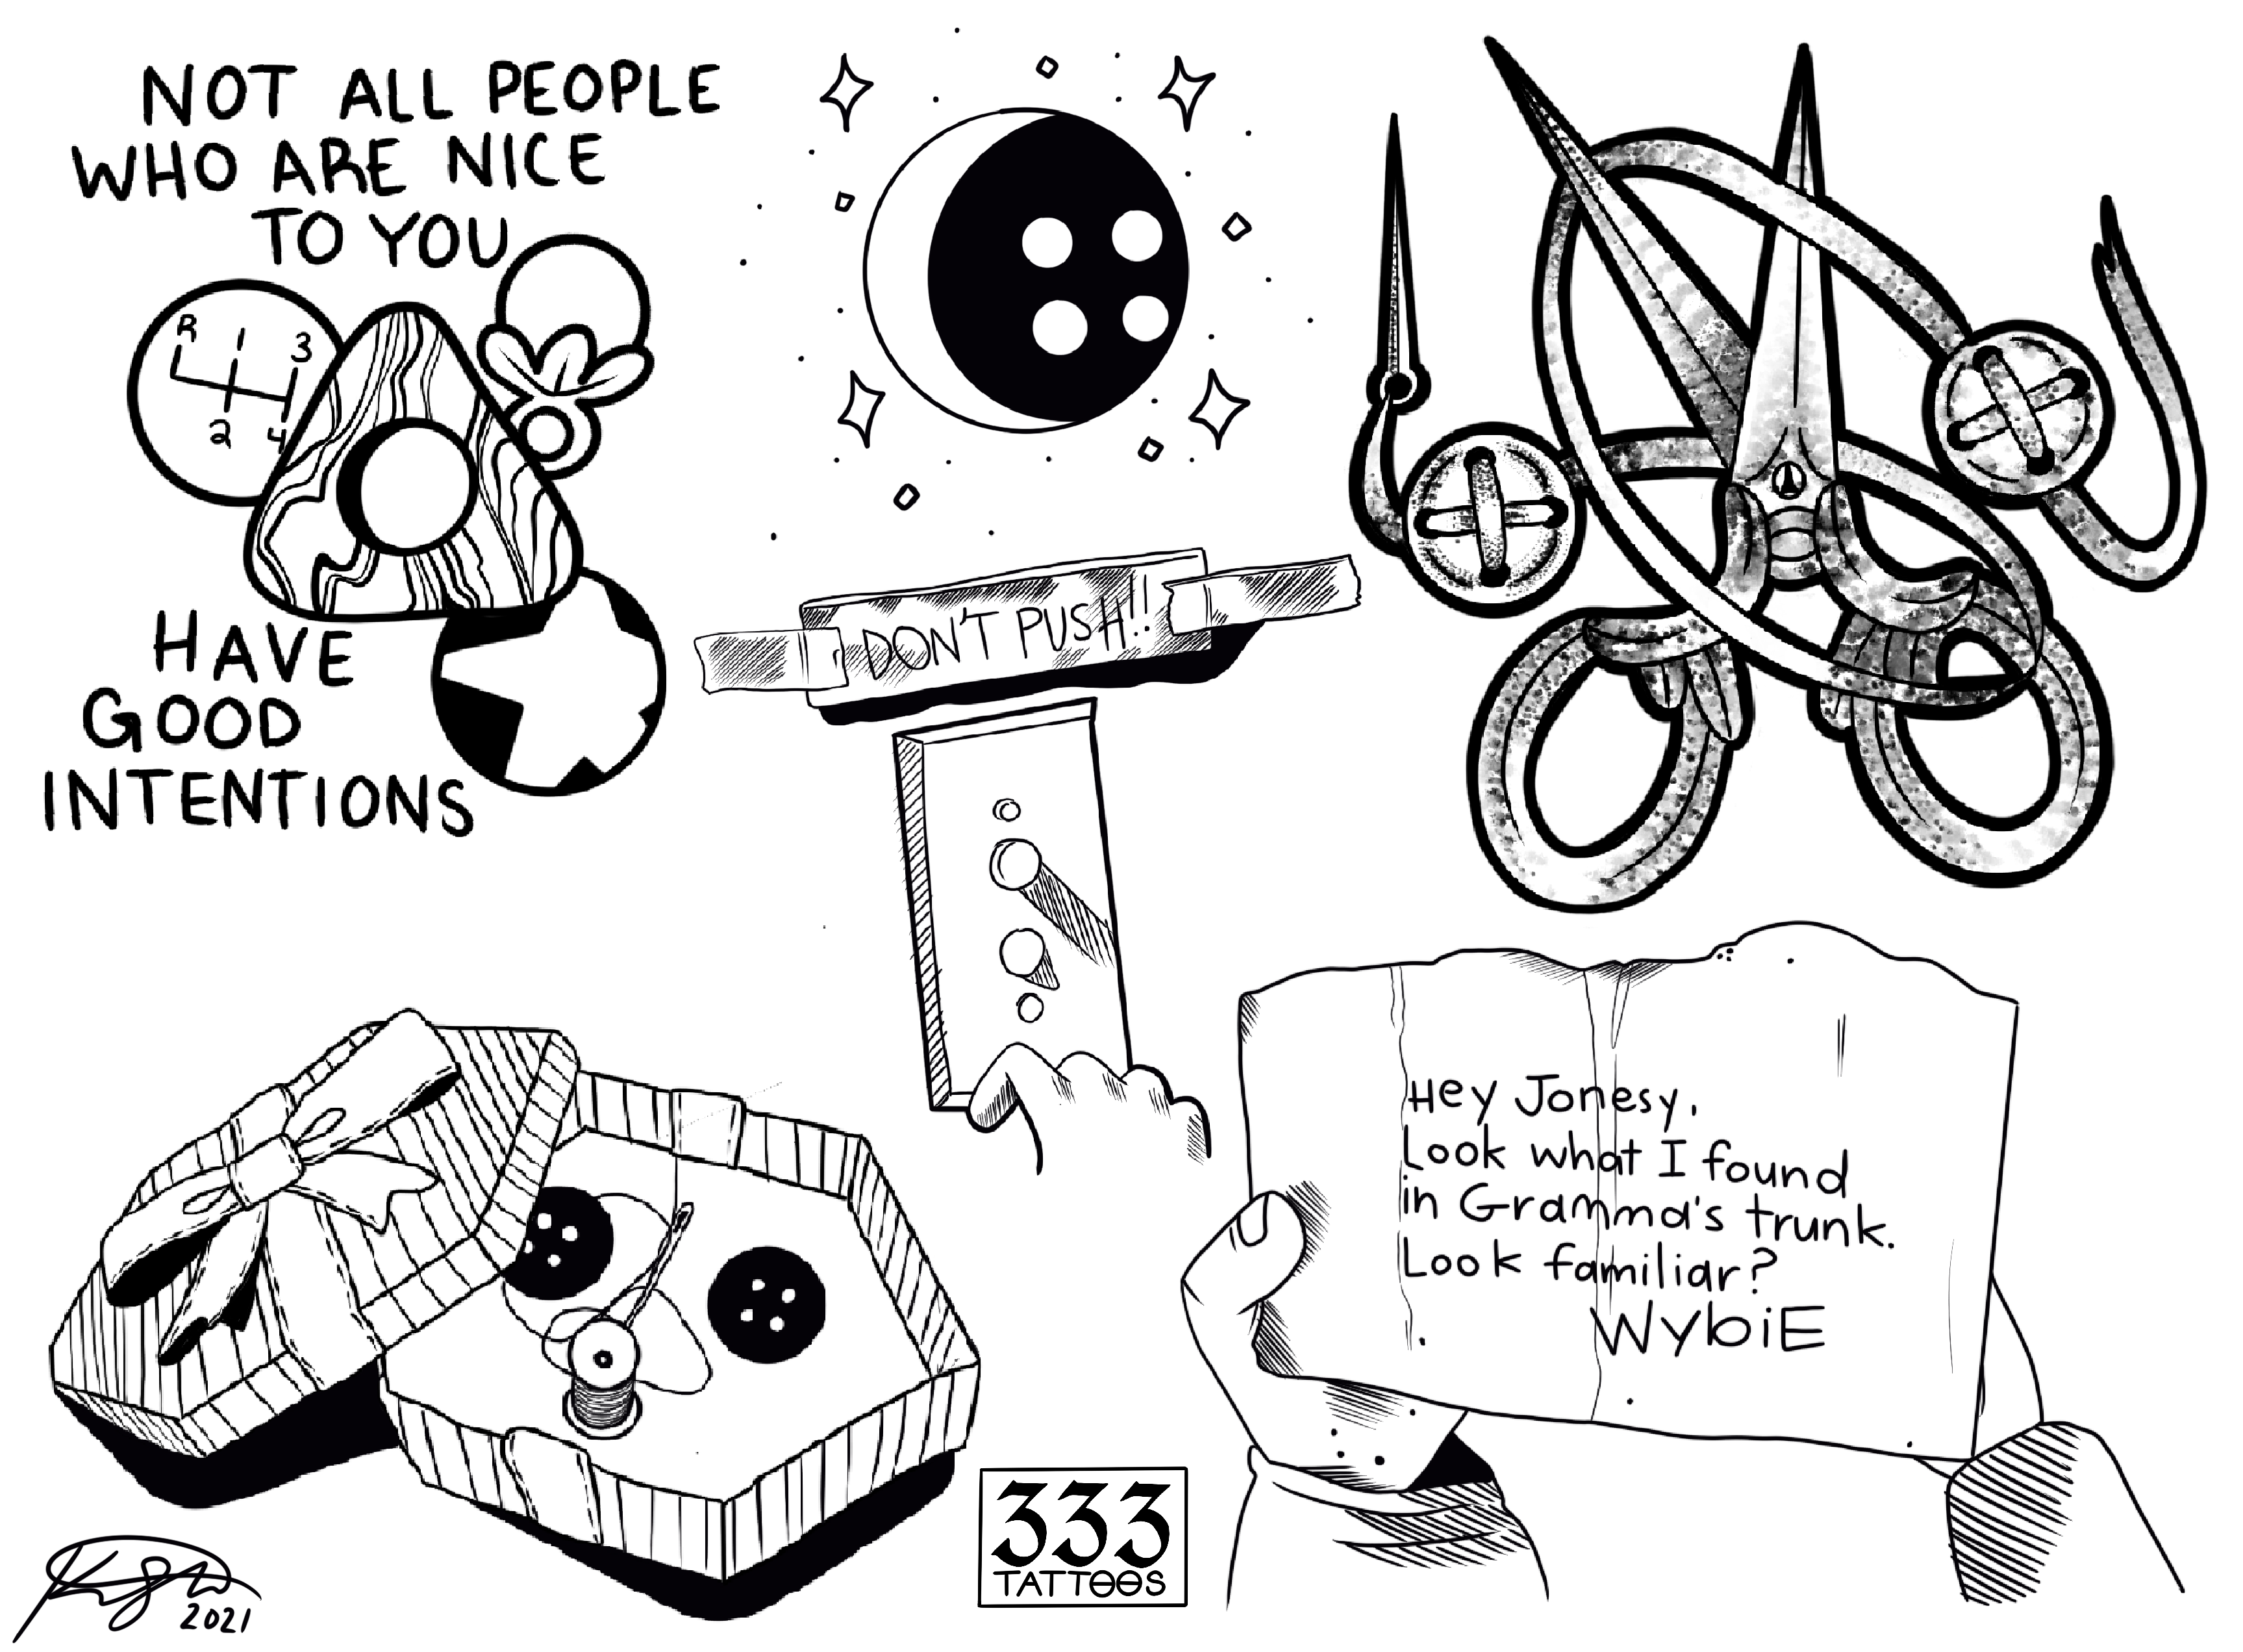 NOT ALL PEOPLE
WHO ARE NICE
TO YOU
R 1 3
2 4
HAVE
GOOD
INTENTIONS
DON'T PUSH!!
Hey Jonesy,
Look what I found
in Gramma's trunk.
Look familiar?
WybiE
333
TATTOOS
2021